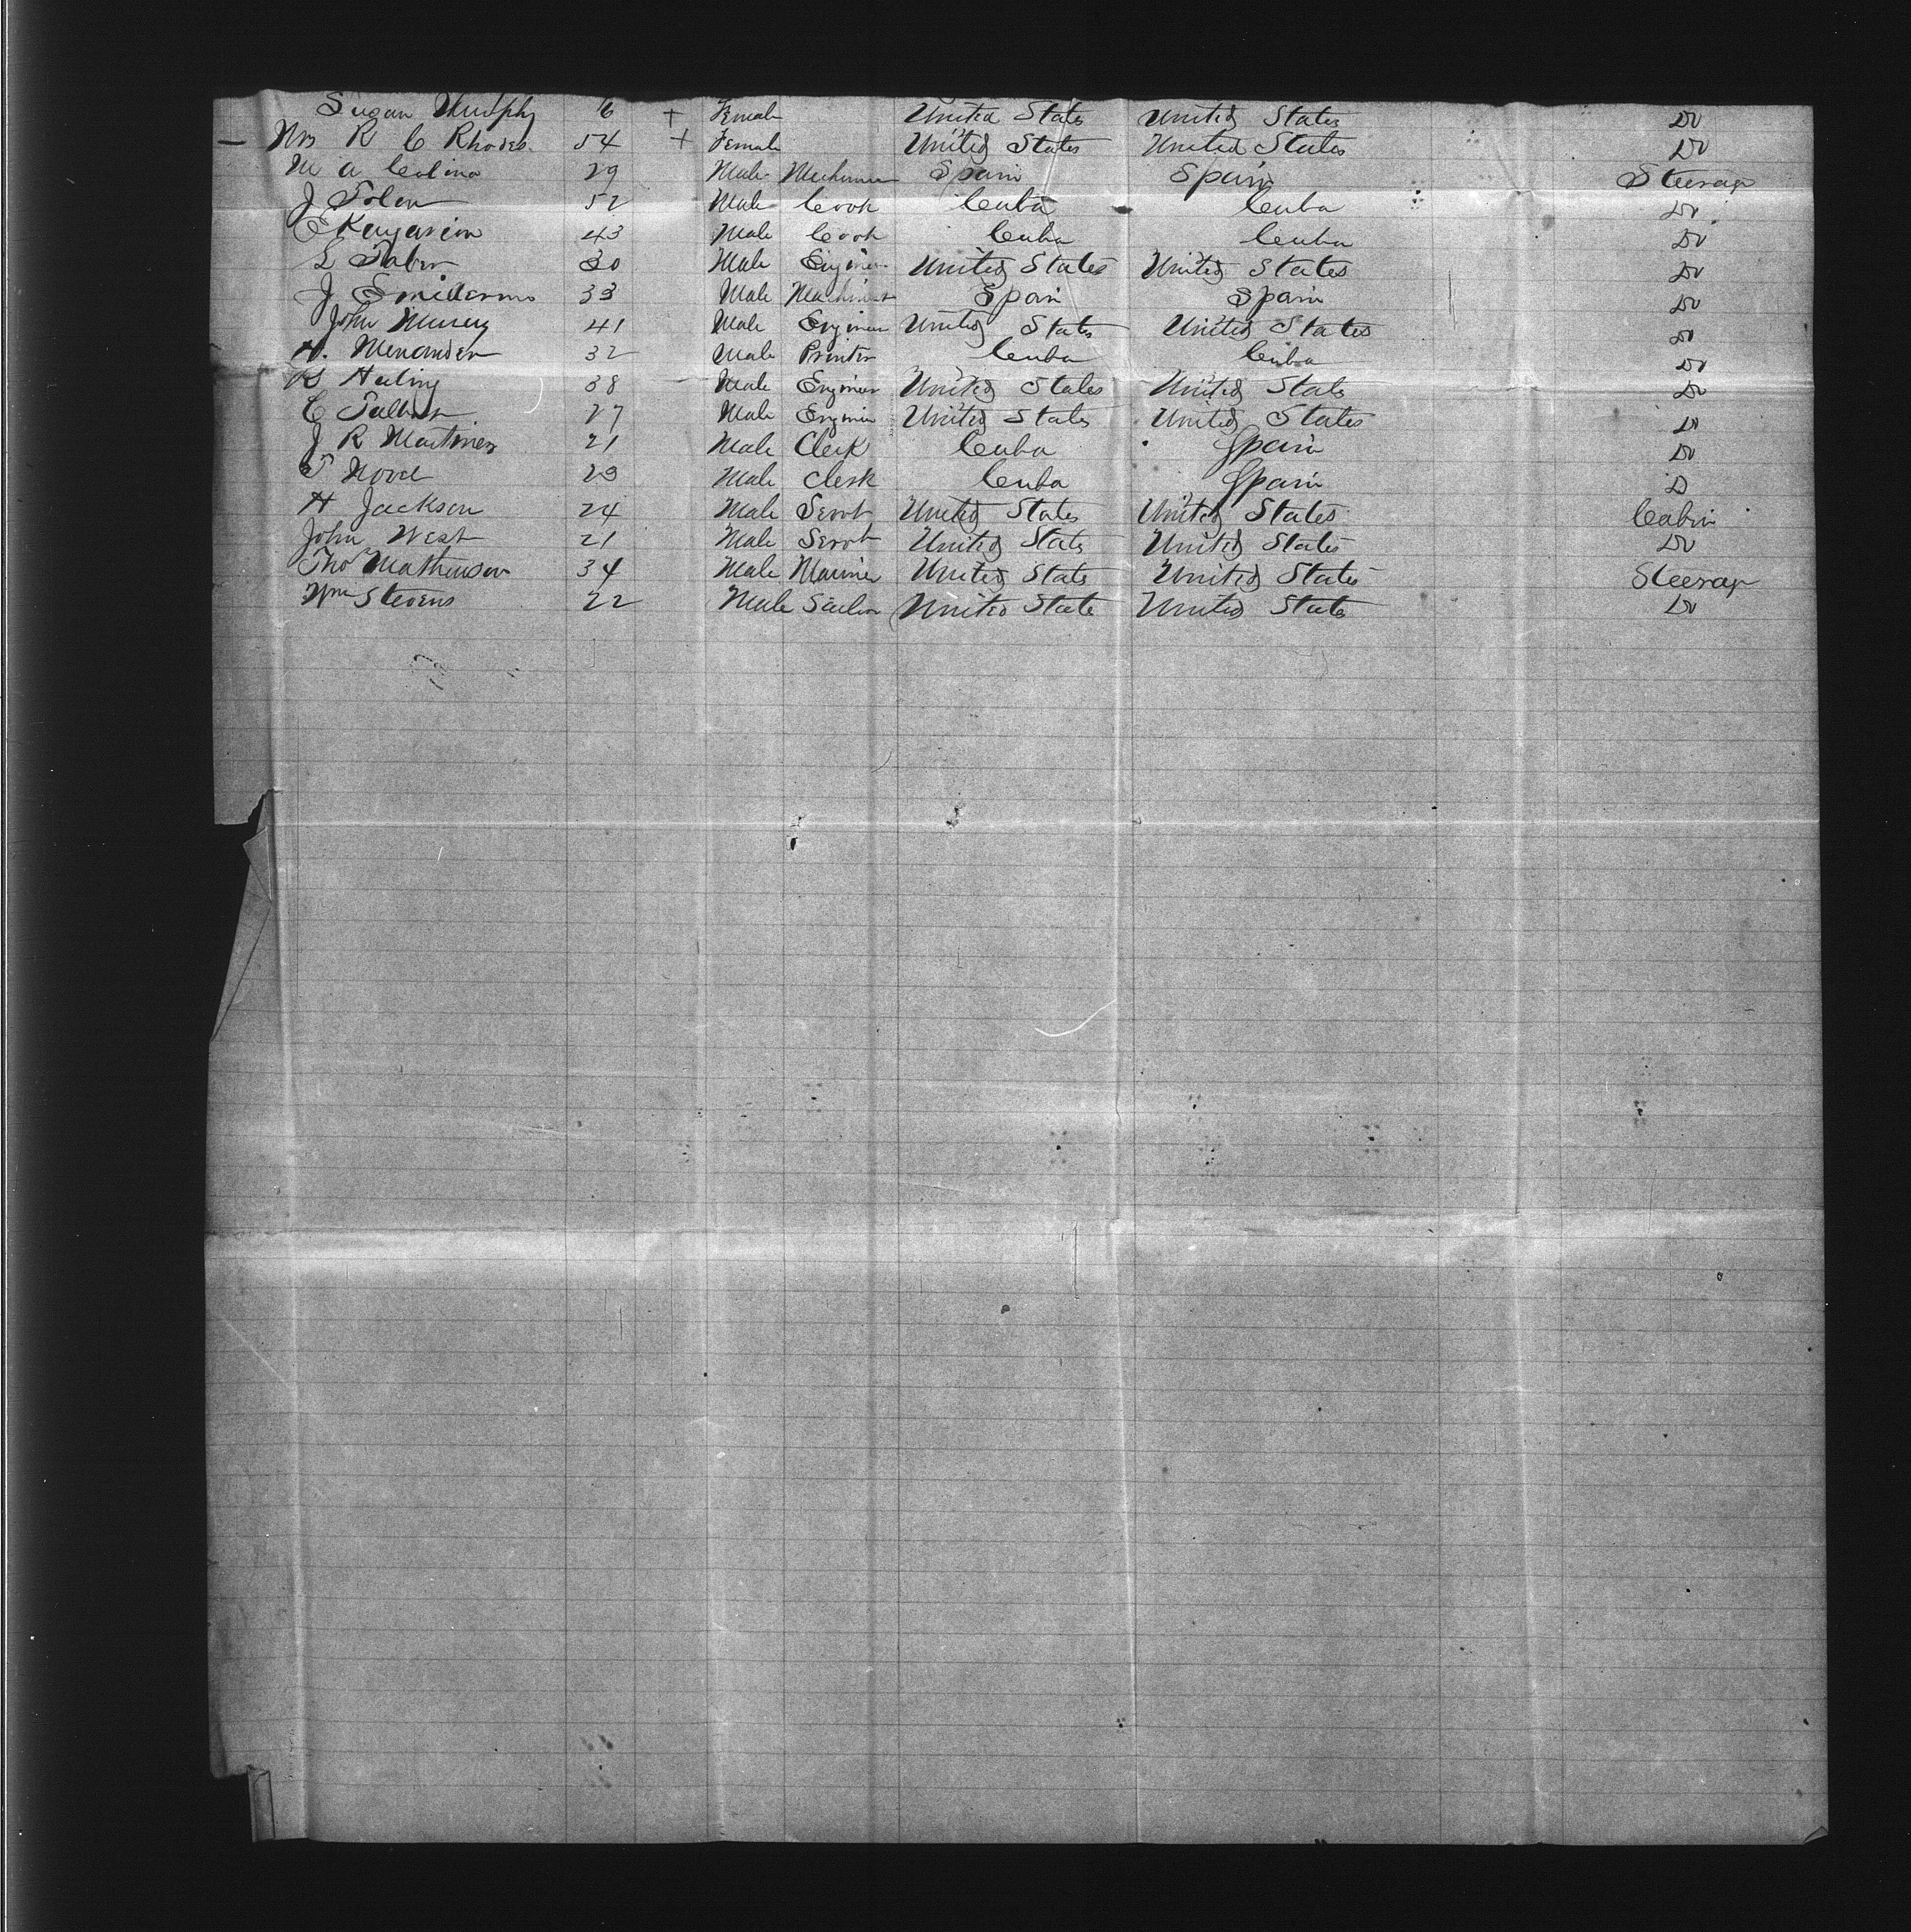 Susan Murphy 6 + Female United States United States Do
— Mrs R C Rhodes. 54 + Female United States United States Do
M A Colina 29 Male Spain Spain Steerage
J 52 Male Cook Cuba Cuba Do
C 43 Male Cook Cuba Cuba Do
L Taber 30 Male Engineer United States United States Do
J 33 Male Machinist Spain Spain Do
John Murray 41 Male Engineer United States United States Do
H. Menander 32 Male Printer Cuba Cuba Do
38 Male Engineer United States United States Do
C Talbot 27 Male Engineer United States United States Do
J R Martinez 21 Male Clerk Cuba Spain Do
23 Male Clerk Cuba Spain D
H Jackson 24 Male Servt United States United States Cabin
John West 21 Male Servt United States United States Do
Thos Mathewson 34 Male Mariner United States United States Steerage
Wm Stevens 22 Male Sailor United States United States Do